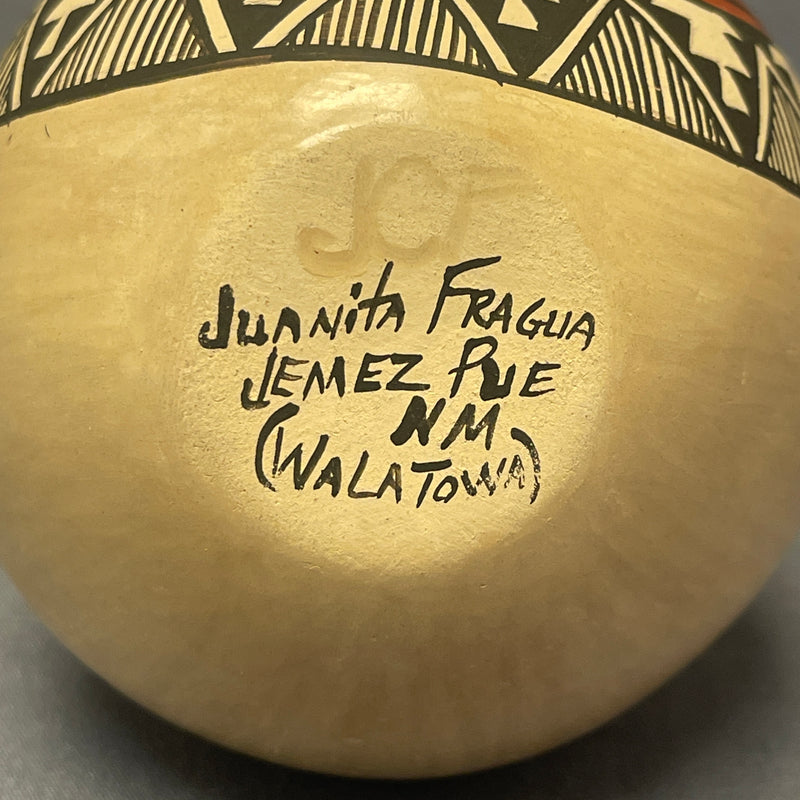 JCF
Juanita Fragua
Jemez Pue
NM
(Walatowa)